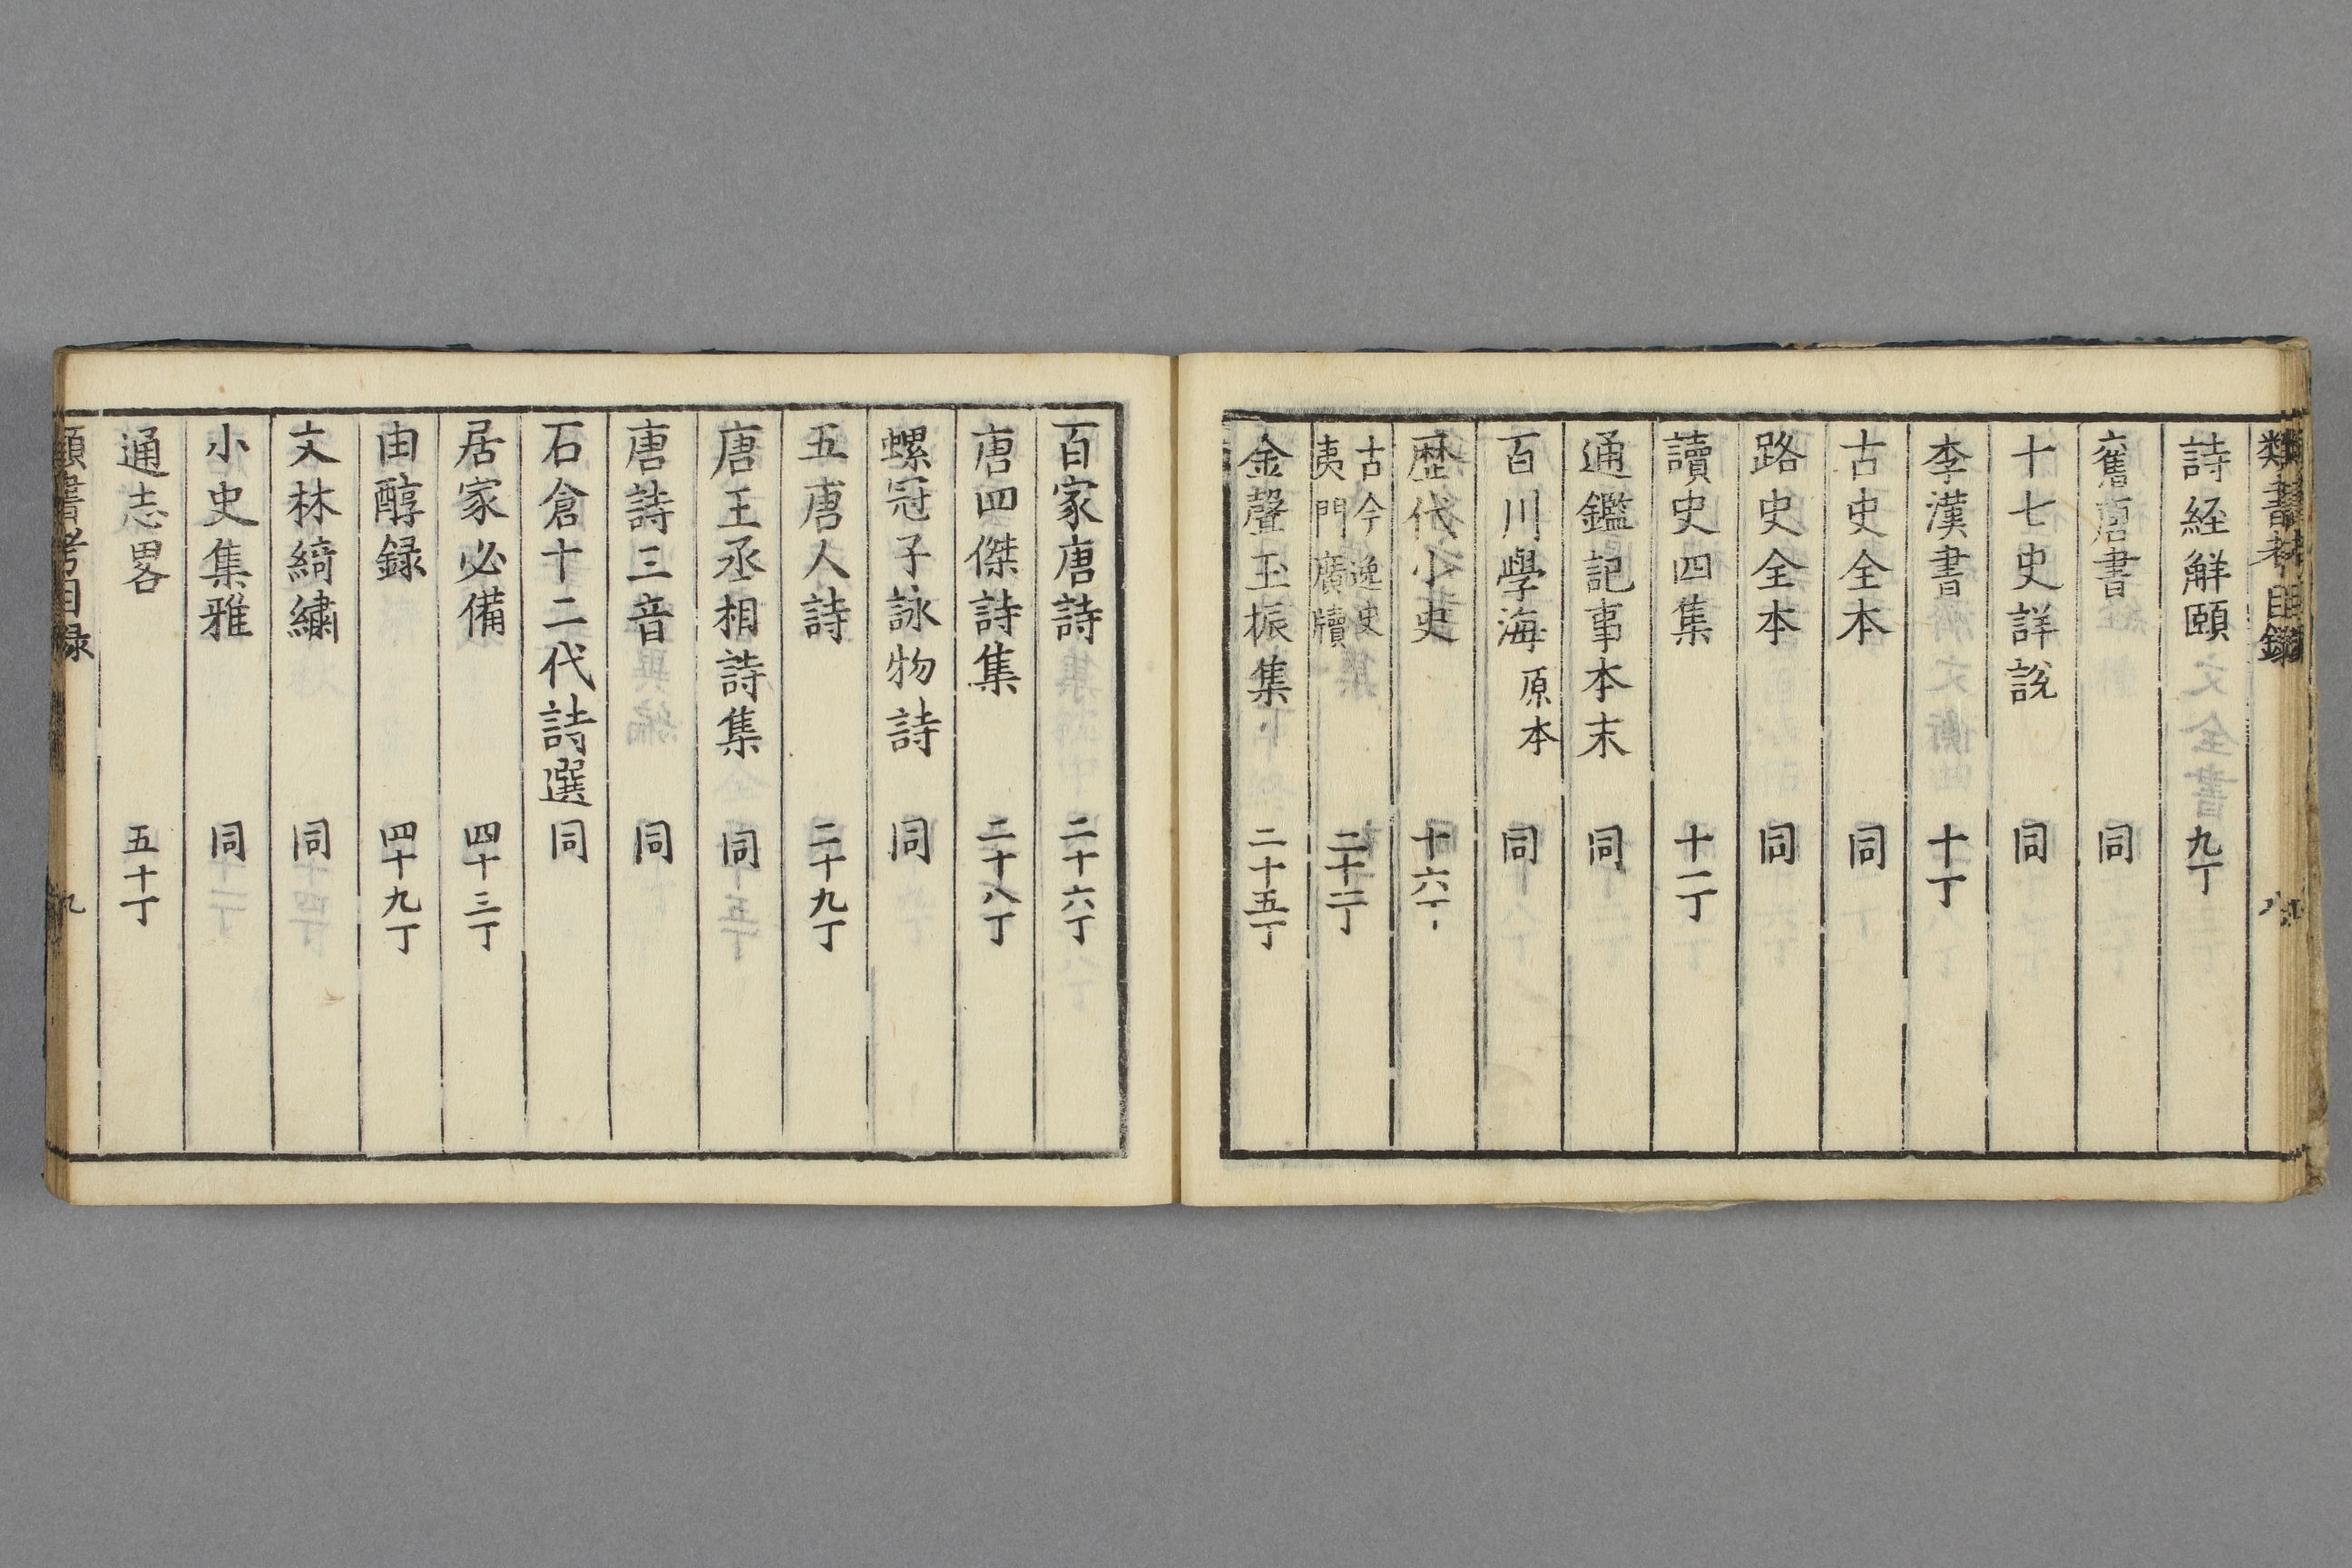 類書考目録 八
詩経解頤 九丁
舊唐書 同
十七史詳説 同
李漢書 十丁
古史全本 同
路史全本 同
讀史四集 十一丁
通鑑記事本末 同
百川學海原本 同
歴代小史 十六丁
古今逸史
夷門廣牘 二十二丁
金聲玉振集 二十五丁
百家唐詩 二十六丁
唐四傑詩集 二十八丁
螺冠子詠物詩 同
五唐人詩 二十九丁
唐王丞相詩集 同
唐詩三音 同
石倉十二代詩選 同
居家必備 四十三丁
由醇録 四十九丁
文林綺繍 同
小史集雅 同
通志畧 五十丁
類書考目録 九